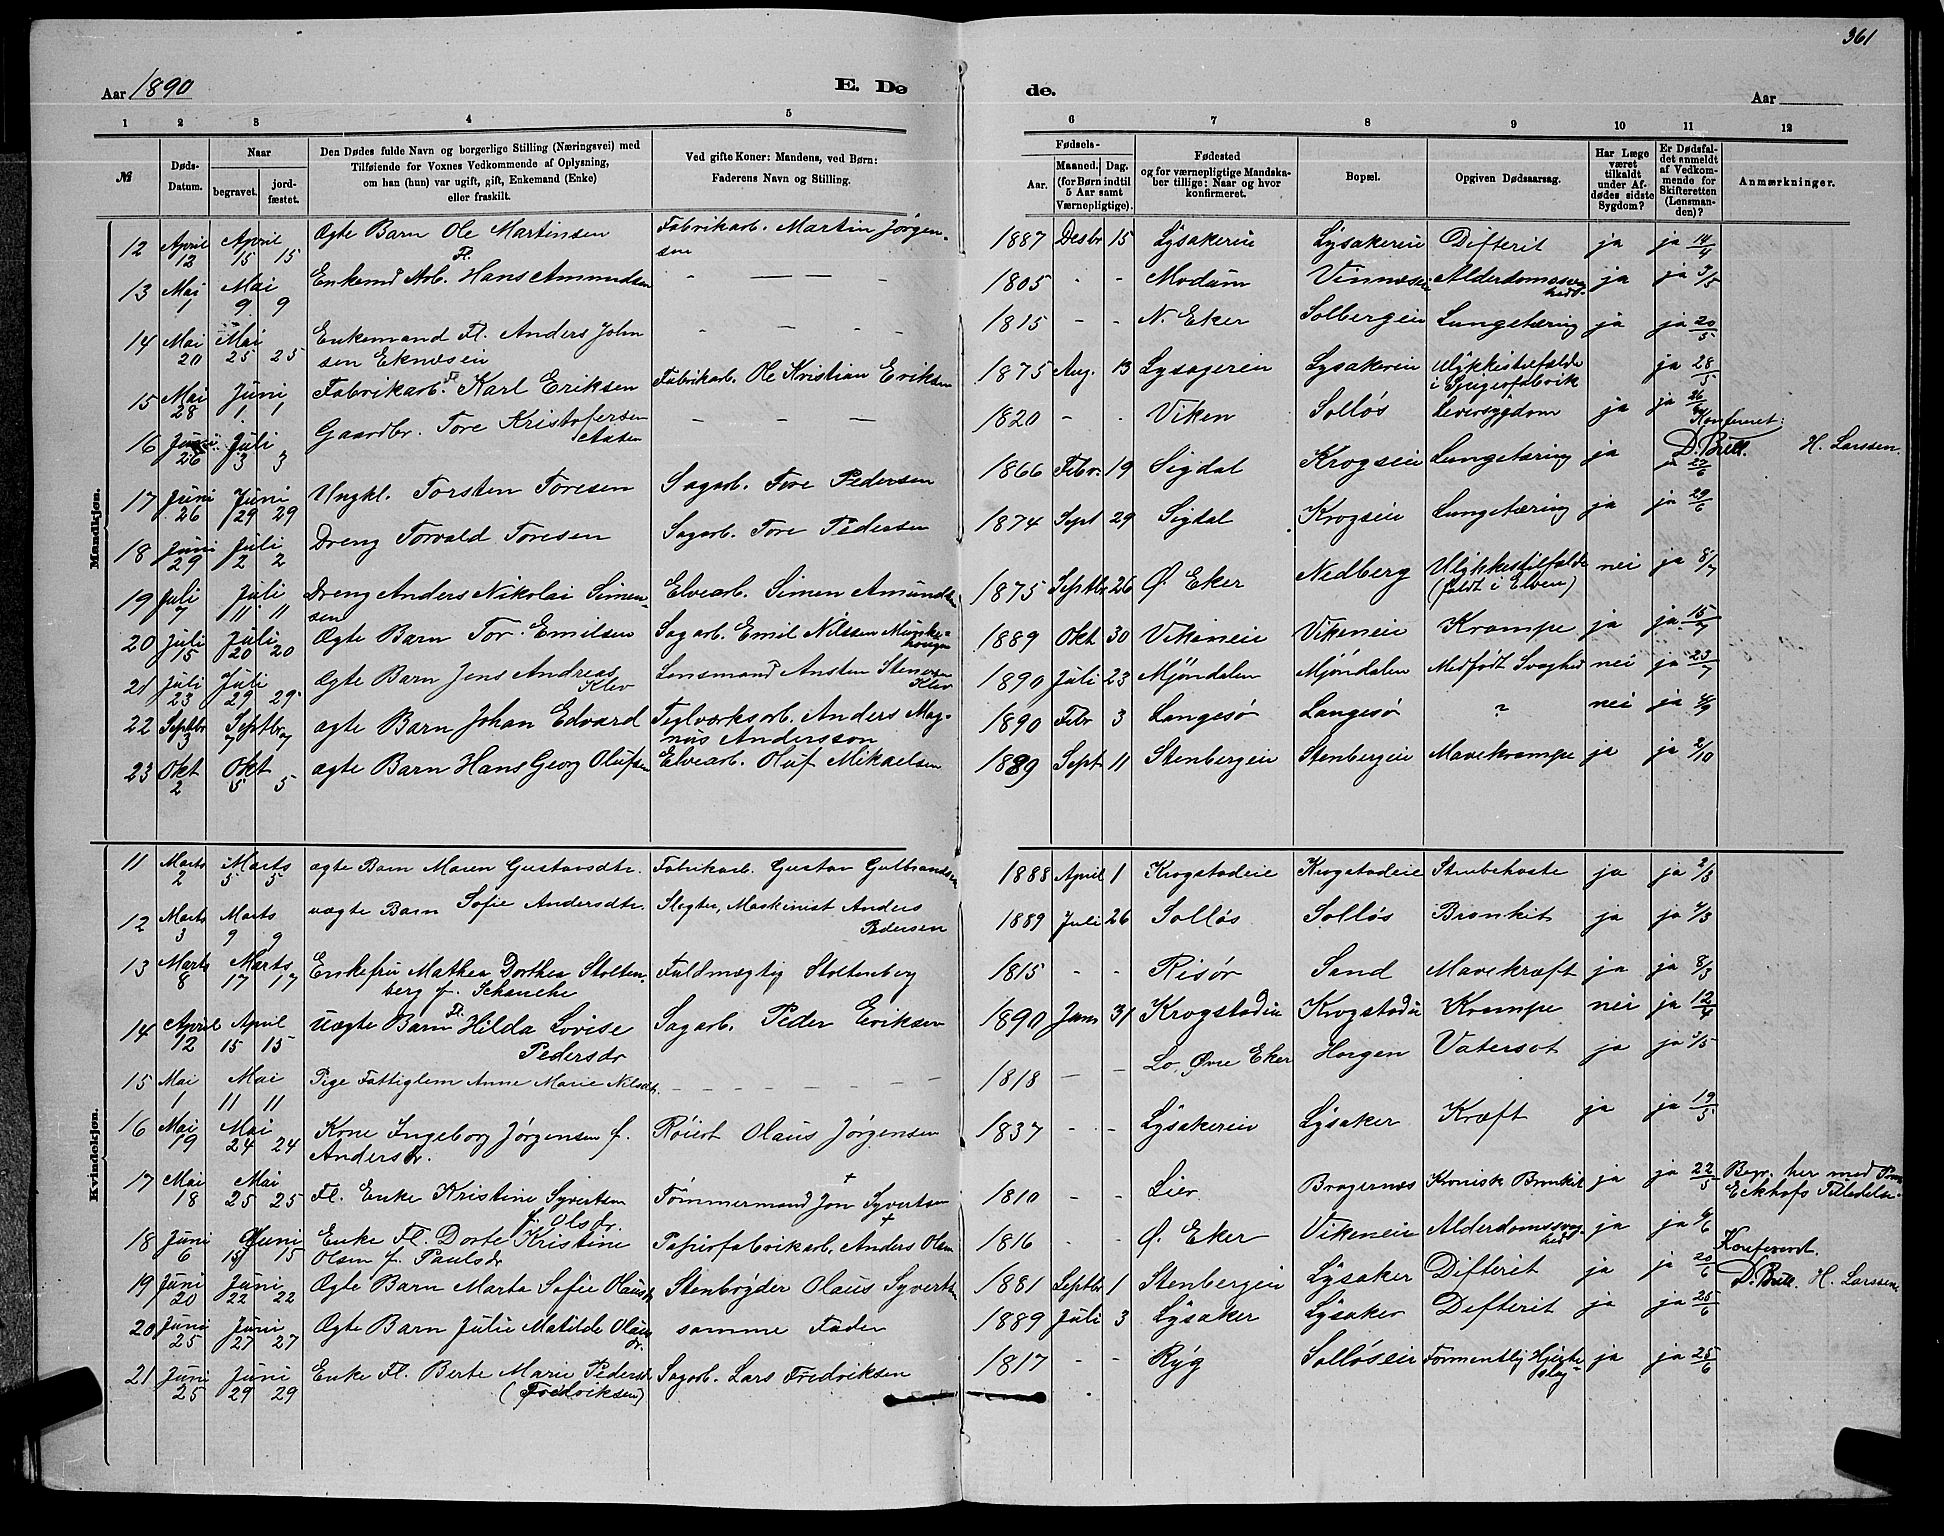 361
Aar 1890
E. Dø
de.
Aar
1 2 3 4 5 6 7 8 9 10 11 12
№
Døds-Datum.
Naar
begravet. jordfæstet.
Den Dødes fulde Navn og borgerlige Stilling (Næringsvei) med
Tilføiende for Voxnes Vedkommende af Oplysning,
om han (hun) var ugift, gift, Enkemand (Enke)
eller fraskilt.
Ved gifte Koner: Mandens, ved Børn:
Faderens Navn og Stilling.
Fødsels-
Aar. Maaned. Dag.
(for Børn indtil
5 Aar samt
Værnepligtige).
Fødested
og for værnepligtige Mandskaber tillige: Naar og hvor
konfirmeret.
Bopæl.
Opgiven Dødsaarsag.
Har Læge
været
tilkaldt
under Afdødes sidste
Sygdom?
Er Dødsfaldet anmeldt
af Vedkommende for
Skifteretten
(Lensmanden)?
Anmærkninger.
Mandkjøn.
12 April 12 April 15 15 Ægte Barn Ole Martinsen Fabrikarb. Martin Jørgensen 1887 Desbr 15 Lysakereie Lysakereie Difterit ja ja 14/4
13 Mai 1 Mai 9 9 Enkemd Fl. Arb. Hans Amundsen — — — 1805 - - Modum Vinnæseie Alderdomssvaghed ja ja 3/5
14 Mai 20 Mai 25 25 Enkemand Fl. Anders Johnsen Eknæseie - - - - 1815 - - N. Eker Solbergeie Lungetæring ja ja 20/5
15 Mai 28 Juni 1 1 Fabrikarb. Fl. Karl Eriksen Fabrikarb. Ole Kristian Eriksen 1875 Aug. 13 Lysagereie Lysakereie Ulykkestilfælde i ja 28/5
16 Juni 26 Juli 3 3 Gaardbr. Tore Kristofersen Aasen — — — 1820 - - Viken Solløs Leversygdom ja ja 26/6 Konfereret: D. Brill. H. Larssen
17 Juni 26 Juni 29 29 Ungkl. Torsten Toresen Sagarb. Tore Pedersen 1866 Febr. 19 Sigdal Krogseie Lungetæring ja ja 27/6
18 Juni 29 Juli 2 2 Dreng Torvald Toresen Sagarb. Tore Pedersen 1874 Sept 29 Sigdal Krogseie Lungetæring ja ja 29/6
19 Juli 7 Juli 11 11 Dreng Anders Nikolai Simensen Elvearb. Simen Amundsen 1875 Septbr 26 Ø. Eker Nedberg Ulykkestilfælde (faldt i Elven) nei ja 8/7
20 Juli 15 Juli 20 20 Ægte Barn Tor Emilsen Sagarb. Emil Nilssen 1889 Okt 30 Vikeneie Vikeneie Krampe ja ja 15/7
21 Juli 23 Juli 29 29 Ægte Barn Jens Andreas Klev Lensmand Ansten Stensen Klev 1890 Juli 23 Mjøndalen Mjøndalen Medfødt Svaghed nei ja 23/7
22 Septbr 3 Septbr 7 7 ægte Barn Johan Edvard Teglværksarb. Anders Magnus Andersson 1890 Febr 3 Langesø Langesø ? nei ja 4/9
23 Okt 2 Okt 5 5 ægte Barn Hans Georg Olufsen Elvearb. Oluf Mikaelsen 1889 Sept 11 Stenbergeie Stenbergeie Mavekrampe ja ja 2/10
Kvindekjøn.
11 Marts 2 Marts 5 5 ægte Barn Maren Gustavsdtr. Fabrikarb. Gustav Gulbrandsen 1888 April 1 Krogstadeie Krogstadeie Strubehoste ja ja 2/3
12 Marts 3 Marts 9 9 uægte Barn Sofie Andersdtr. Slagter, Maskinist Anders Pedersen 1889 Juli 26 Solløs Solløs Bronkit ja ja 4/3
13 Marts 8 Marts 17 17 Enkefru Mathea Dorthea Stoltenberg f. Schanche Fuldmægtig Stoltenberg 1815 - - Risør Sand Mavekræft ja ja 8/3
14 April 12 April 15 15 Uægte Barn Fl. Hilda Lovise Pedersdr Sagarb. Peder Eriksen 1890 Jan 31 Krogstadeie Krogstadeie Krampe nei ja 12/4
15 Mai 1 Mai 11 11 Pige Fattiglem Anne Marie Nilsdtr. — — — 1818 - - Lo, Øvre Eker Horgen Vatersot ja ja 2/5
16 Mai 19 Mai 24 24 Kone Ingeborg Jørgensen f. Andersdr. Røiert Olaus Jørgensen 1837 - - Lysakereie Lysaker Kræft ja ja 19/5
17 Mai 18 Mai 25 25 Fl. Enke Kristine Syvertsen f. Olsdr. Tømmermand Jon + Syvertsen 1810 - - Lier Bragernæs Kronisk Bronkit ja ja 22/5 Begr. her med Eckhofs Tilladelse
18 Juni 6 Juni 15 15 Enke Fl. Dorte Kristine Olsen f. Paulsdr Papirfabrikarb. Anders + Olsen 1816 - - Ø. Eker Vikeneie Alderdomssvaghed ja ja 6/6
19 Juni 20 Juni 22 22 Ægte Barn Marta Sofie Olausdr Stenbryder Olaus Syvertsen 1881 Septbr 1 Stenbergeie Lysaker Difterit ja ja 20/6 Konfereret. D. Brill. H. Larssen
20 Juni 25 Juni 27 27 Ægte Barn Julie Matilde Olausdr. samme Fader 1889 Juli 3 Lysaker Lysaker Difterit ja ja 25/6
21 Juni 25 Juni 29 29 Enke Fl. Berte Marie Pedersdr (Fredriksen) Sagarb. Lars Fredriksen 1817 - - Ryg Solløseie Formentlig Hjerteslag ja ja 25/6